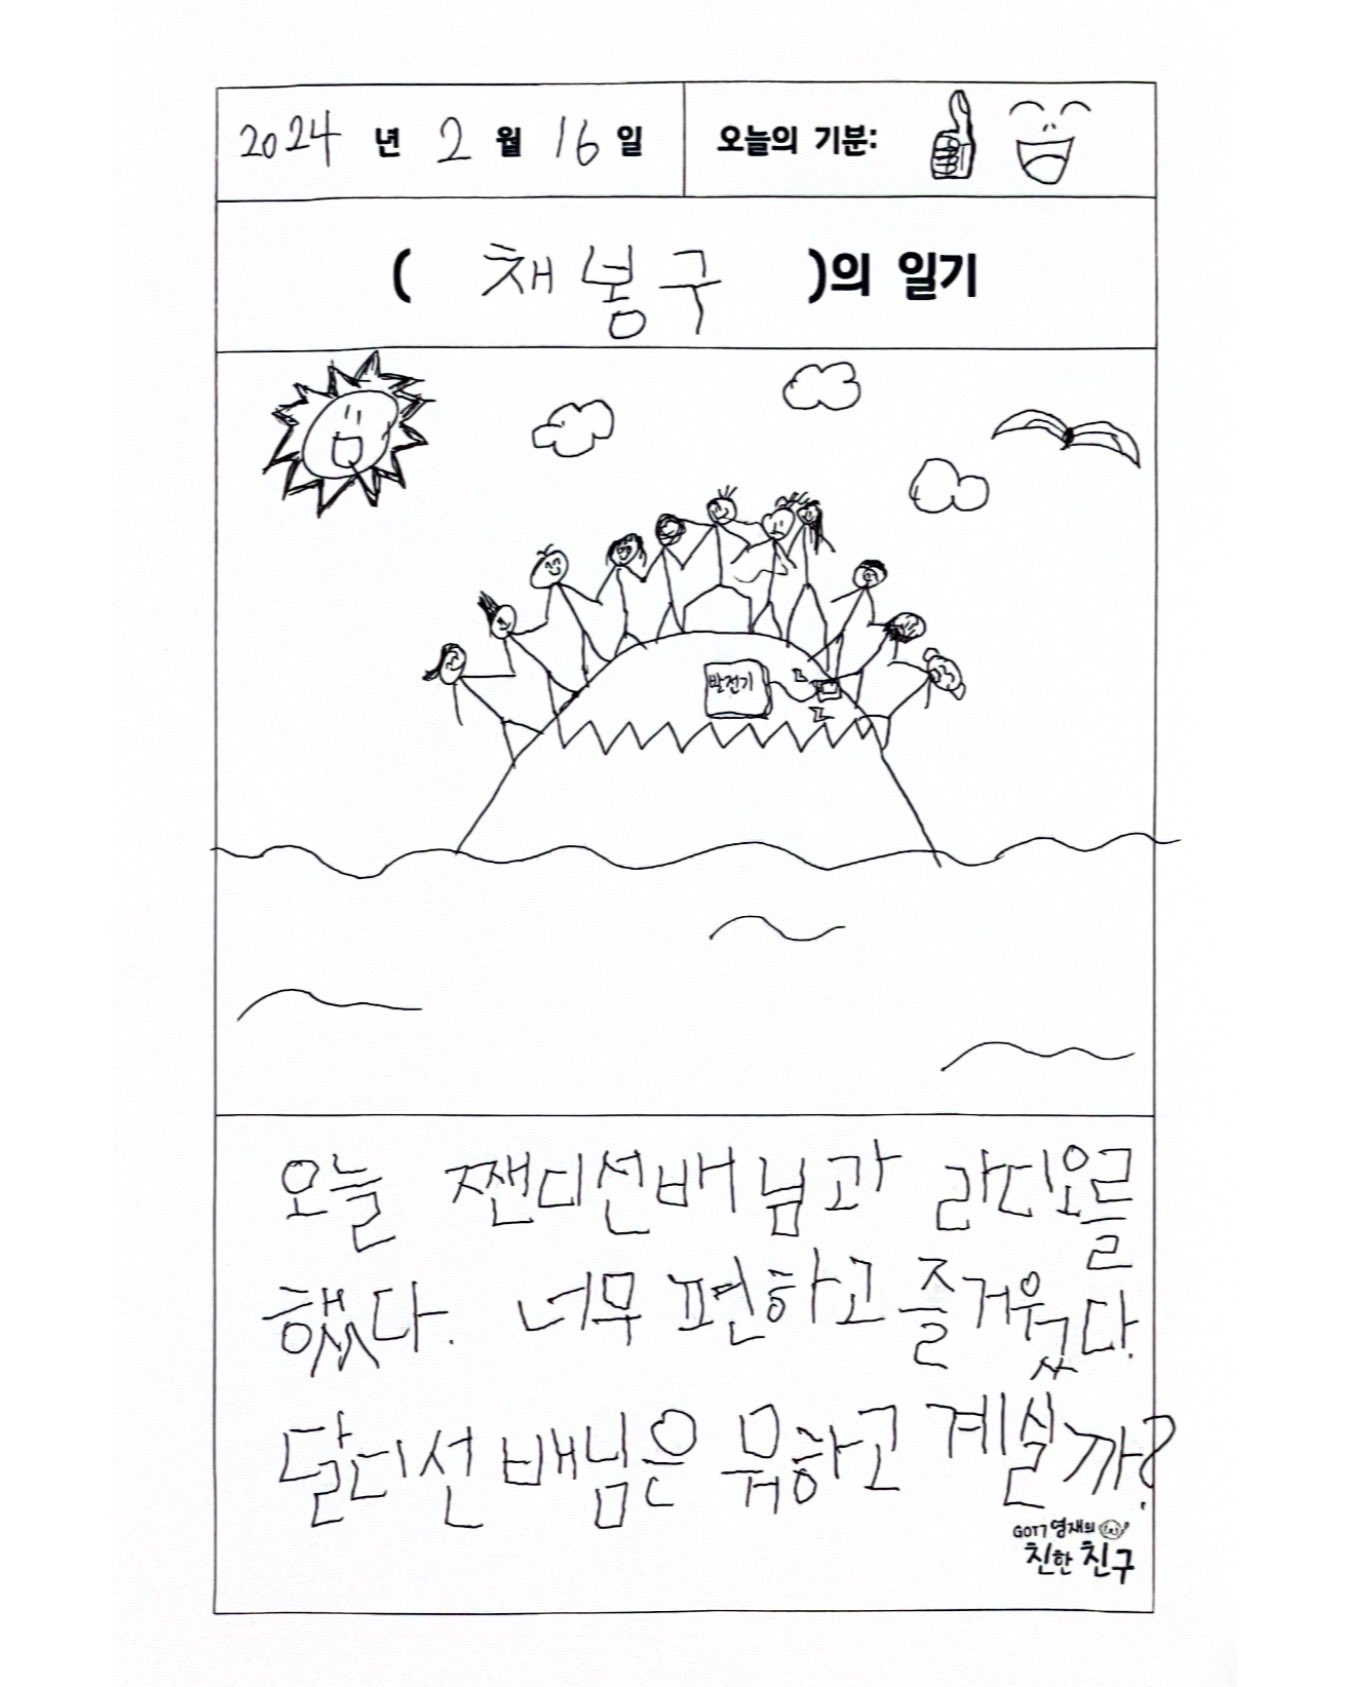 2024 년 2 월 16 일 오늘의 기분:
( 채봉구 )의 일기
발전기
오늘 짼디선배님과 라디오를
했다. 너무 편하고 즐거웠다.
달디선배님은 뭐하고 계실까?
GOT7 영재의
친한친구